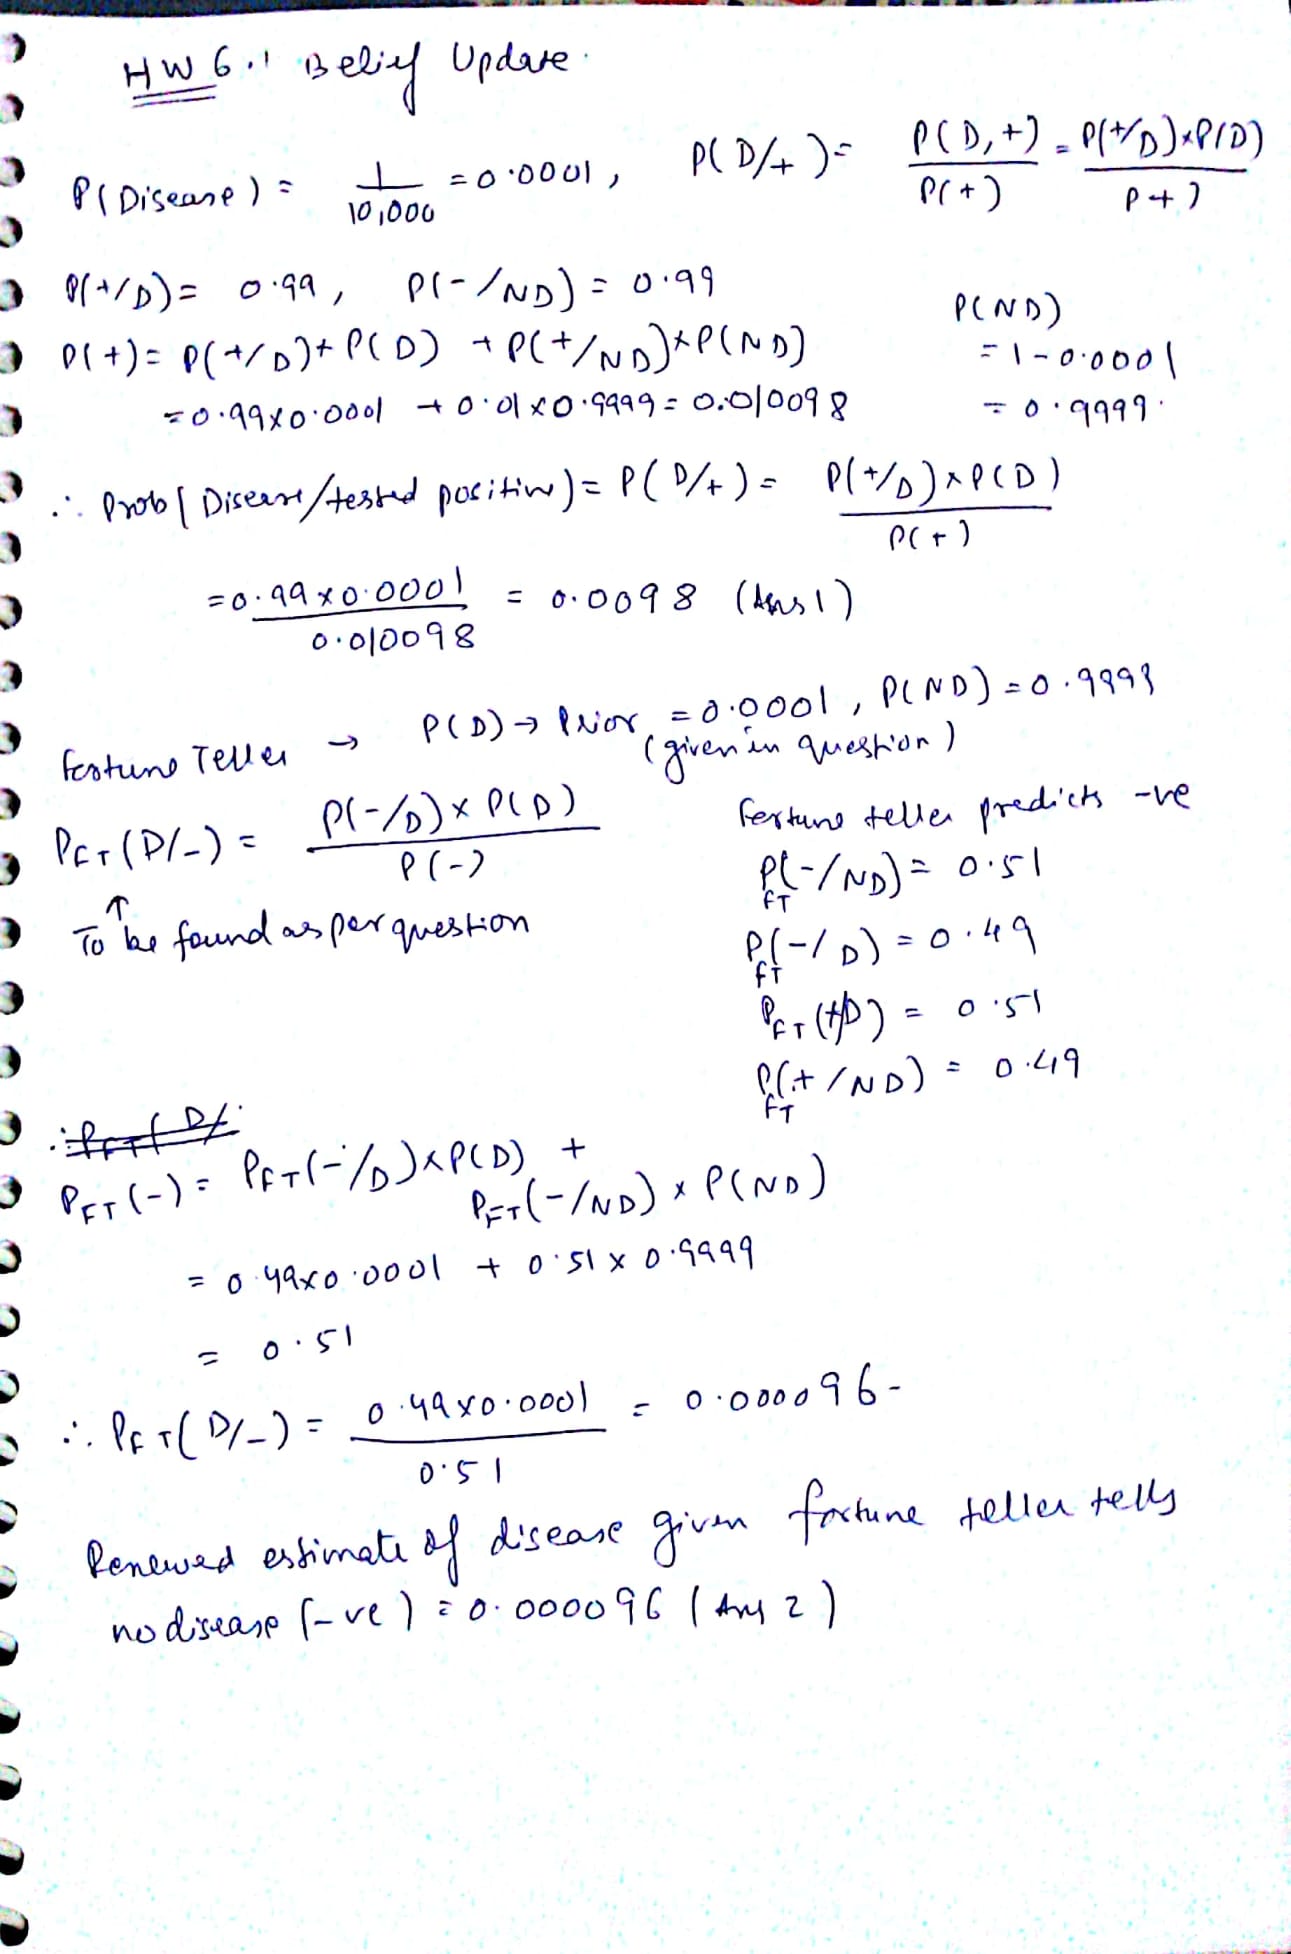 HW 6.1 Belief Update.
P(Disease) = 1/10,000 = 0.0001, P(D/+) = P(D,+)/P(+) = P(+/D)×P(D)/P+)
P(+/D) = 0.99, P(-/ND) = 0.99
P(ND)
P(+) = P(+/D)* P(D) + P(+/ND)*P(ND)
= 1-0.0001
= 0.99×0.0001 + 0.01×0.9999 = 0.010098
= 0.9999.
∴ Prob(Disease/tested positive) = P(D/+) = P(+/D)×P(D)/P(+)
= 0.99×0.0001/0.010098 = 0.0098 (Ans 1)
Fortune Teller → P(D) → Prior = 0.0001, P(ND) = 0.9999
(given in question)
PFT(D/-) = P(-/D) × P(D)/P(-)
↑
To be found as per question
Fortune teller predicts -ve
PFT(-/ND) = 0.51
PFT(-/D) = 0.49
PFT(+/D) = 0.51
PFT(+/ND) = 0.49
PFT(-) = PFT(-/D)×P(D) +
PFT(-/ND) × P(ND)
= 0.49×0.0001 + 0.51 × 0.9999
= 0.51
∴ PFT(D/-) = 0.49×0.0001/0.51 = 0.000096-
Renewed estimate of disease given fortune teller tells
no disease (-ve) = 0.000096 (Ans 2)